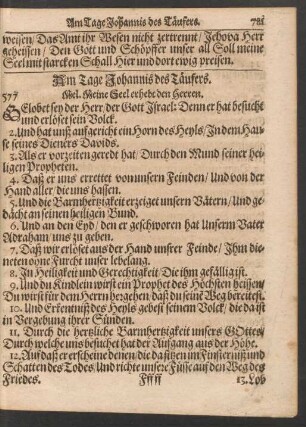 Am Tage Johannis des Täufers. 781
weisen/ Das Amt ihr Wesen nicht zertrennt/ Jehova Herr
geheissen/ Den Gott und Schöpffer unser all Soll meine
Seel mit starcken Schall Hier und dort ewig preisen.
Am Tage Johannis des Täufers.
577 Mel. Meine Seel erhebt den Herren.
GElobet sey der Herr/ der Gott Israel: Denn er hat besucht
und erlöset sein Volck.
2. Und hat unß aufgericht ein Horn des Heyls/ In dem Hau-
se seines Dieners Davids.
3. Als er vorzeiten geredt hat/ Durch den Mund seiner hei-
ligen Propheten.
4. Daß er uns errettet von unsern Feinden/ Und von der
Hand aller/ die uns hassen.
5. Und die Barmhertzigkeit erzeiget unsern Vätern/ Und ge-
dächt an seinen heiligen Bund.
6. Und an den Eyd/ den er geschworen hat Unserm Vater
Abraham/ uns zu geben.
7. Daß wir erlöset aus der Hand unsrer Feinde/ Ihm die-
neten ohne Furcht unser lebelang.
8. In Heiligkeit und Gerechtigkeit Die ihm gefällig ist.
9. Und du Kindlein wirst ein Prophet des Höchsten heißen/
Du wirst für dem Herrn hergehen/ daß du seine Weg bereitest.
10. Und Erkentniß des Heyls gebest seinem Volck/ die da ist
in Vergebung ihrer Sünden.
11. Durch die hertzliche Barmhertzigkeit unsers GOttes/
Durch welche uns besuchet hat der Aufgang aus der Höhe.
12. Auf daß er erscheine denen/ die da sitzen im Finsterniß und
Schatten des Todes/ Und richte unsre Füsse auf den Weg des
Friedes. Fff ff 13. Lob